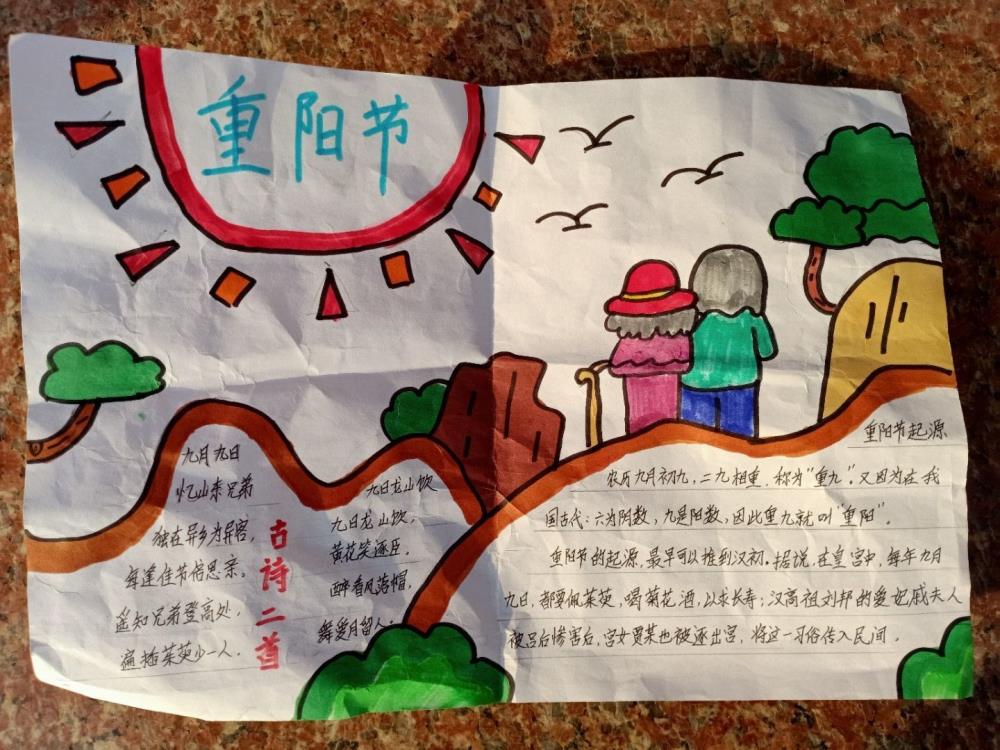 重阳节
九月九日
忆山东兄弟
独在异乡为异客，
每逢佳节倍思亲。
遥知兄弟登高处，
遍插茱萸少一人。
古诗二首
九日龙山饮
九日龙山饮，
黄花笑逐臣。
醉看风落帽，
舞爱月留人。
重阳节起源
农历九月初九，二九相重，称为"重九"。又因为在我
国古代：六为阴数，九是阳数，因此重九就叫"重阳"。
重阳节的起源，最早可以推到汉初。据说，在皇宫中，每年九月
九日，都要佩茱萸，喝菊花酒，以求长寿；汉高祖刘邦的爱妃戚夫人
被吕后惨害后，宫女贾某也被逐出宫，将这一习俗传入民间。